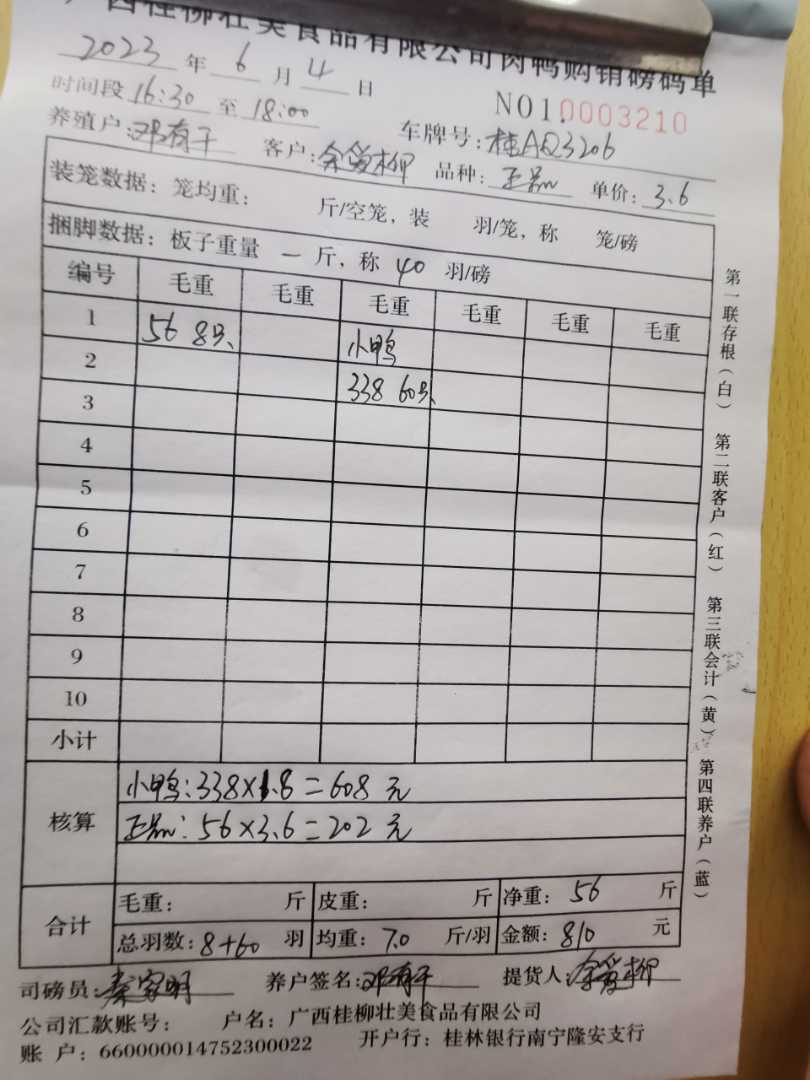 广西桂柳壮美食品有限公司肉鸭购销磅码单
2023年6月4日
时间段16:30至18:00
NO1.0003210
养殖户:邓有干 客户: 车牌号:桂AQ3206
品种:正品 单价:3.6
装笼数据:笼均重: 斤/空笼,装 羽/笼,称 笼/磅
捆脚数据:板子重量 一 斤,称 40 羽/磅
编号 毛重 毛重 毛重 毛重 毛重 毛重
1 56 8只 小鸭
2 338 60只
3
4
5
6
7
8
9
10
小计
核算 小鸭:338×1.8=608元
正品:56×3.6=202元
合计 毛重: 斤 皮重: 斤 净重:56 斤
总羽数:8+60 羽 均重:7.0 斤/羽 金额:810 元
司磅员:秦家明 养户签名:邓有干 提货人:
公司汇款账号: 户名:广西桂柳壮美食品有限公司
账 户:660000014752300022 开户行:桂林银行南宁隆安支行
第一联存根(白) 第二联客户(红) 第三联会计(黄) 第四联养户(蓝)